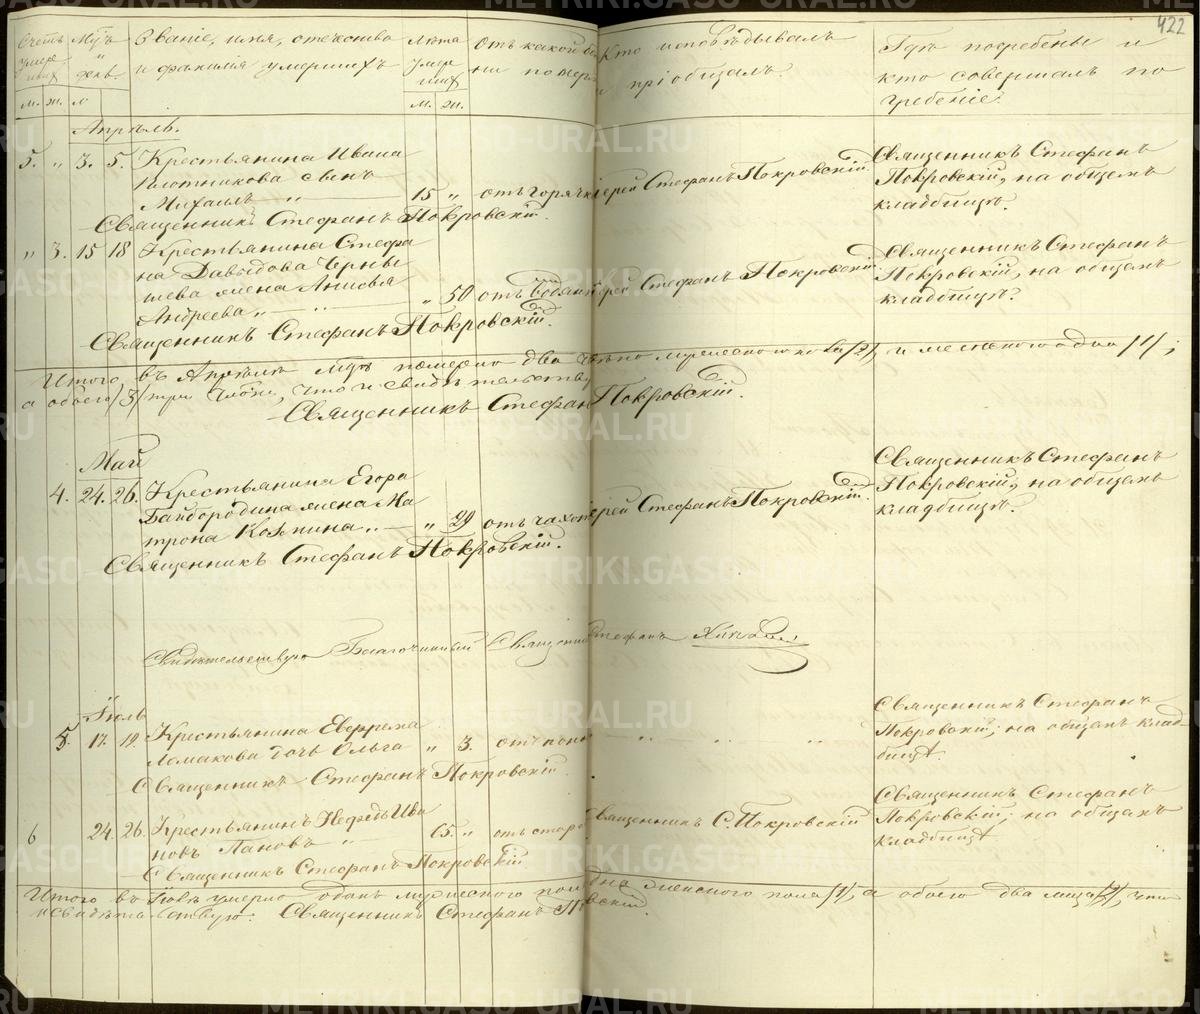 422
Счетъ умерших
Мѣс. и день.
Званіе, имя, отечество
и фамилія умершихъ
Лѣта умерших
отъ
Кто исповѣдывалъ
и пріобщалъ.
Гдѣ погребены и
кто совершалъ по
гребеніе.
м. ж. м. ж.
Апрѣль.
5. " 3. 5. Крестьянина Ивана
Плотникова сынъ
Михаилъ " 15 " отъ горячки
Іерей Стефанъ Покровскій
Священникъ Стефанъ
Покровскій, на общемъ
кладбищѣ.
Священникъ Стефанъ Покровскій.
" 3. 15 18 Крестьянина Стефа
на Давыдова Черны
шева жена Анисья
Андреева " " 50 отъ
Іерей Стефанъ Покровскій
Священникъ Стефанъ
Покровскій, на общемъ
кладбищѣ.
Священникъ Стефанъ Покровскій.
Итого въ Апрѣлѣ померло два мужескаго /2/, и женскаго одна /1/;
а обоего /3/ три
Священникъ Стефанъ Покровскій.
Май
4. 24. 26. Крестьянина Егора
Байбородина жена Ма
трона Козмина " " 29 отъ чахот
Іерей Стефанъ Покровскій.
Священникъ Стефанъ
Покровскій, на общемъ
кладбищѣ.
Священникъ Стефанъ Покровскій.
Свидѣтельствую Благочинный Священник Стефанъ
Іюль
5. 17. 19. Крестьянина
Ломакова дочь Ольга " 3. отъ поно
" " "
Священникъ Стефанъ
Покровскій; на общемъ клад-
бищѣ.
Священникъ Стефанъ Покровскій.
6 24. 26. Крестьянинъ Нефедъ Ива
новъ Пановъ " 65. " отъ старо
Священникъ С. Покровскій
Священникъ Стефанъ
Покровскій; на общемъ
кладбищѣ
Священникъ Стефанъ Покровскій.
Итого въ Іюлѣ умерло одинъ мужескаго пола одна женскаго пола /1/, а обоего два лица /2/, что
и свидѣтельствую: Священникъ Стефанъ Покровскій.
METRIKI.GASO-URAL.RU